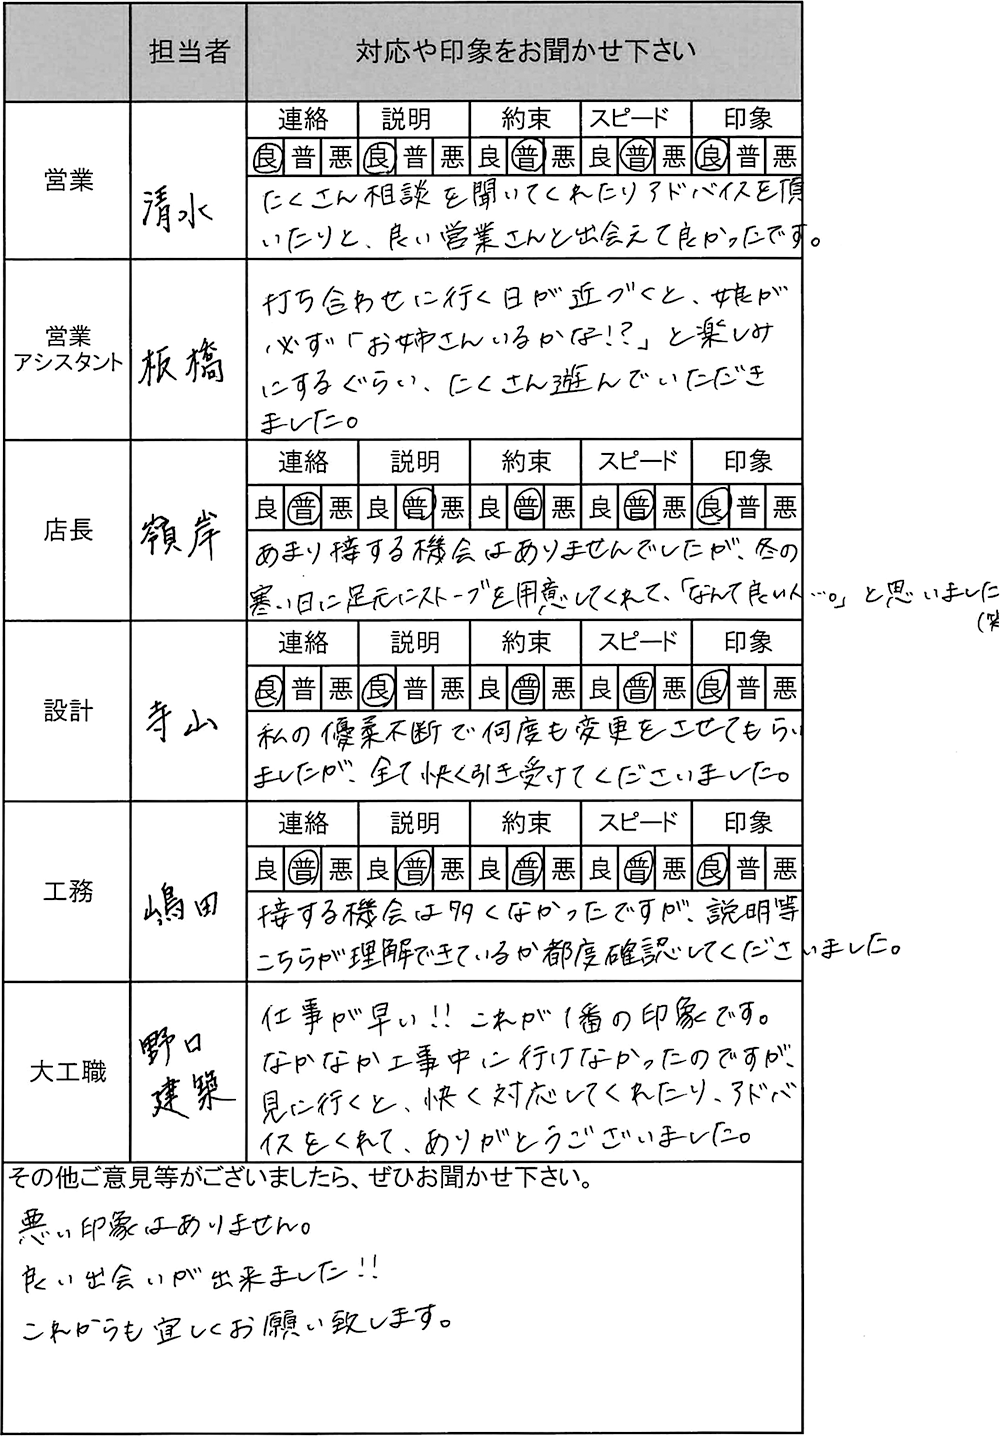 担当者 対応や印象をお聞かせ下さい
連絡 説明 約束 スピード 印象
良 普 悪 良 普 悪 良 普 悪 良 普 悪 良 普 悪
営業
清水
たくさん相談を聞いてくれたりアドバイスを頂
いたりと、良い営業さんと出会えて良かったです。
営業
アシスタント
板橋
打ち合わせに行く日が近づくと、娘が
必ず「お姉さんいるかな!?」と楽しみ
にするぐらい、たくさん遊んでいただき
ました。
連絡 説明 約束 スピード 印象
良 普 悪 良 普 悪 良 普 悪 良 普 悪 良 普 悪
店長
嶺岸
あまり接する機会はありませんでしたが、冬の
寒い日に足元にストーブを用意してくれて、「なんて良い人…。」と思いました
(笑
連絡 説明 約束 スピード 印象
良 普 悪 良 普 悪 良 普 悪 良 普 悪 良 普 悪
設計
寺山
私の優柔不断で何度も変更をさせてもらい
ましたが、全て快く引き受けてくださいました。
連絡 説明 約束 スピード 印象
良 普 悪 良 普 悪 良 普 悪 良 普 悪 良 普 悪
工務
嶋田
接する機会は多くなかったですが、説明等
こちらが理解できているか都度確認してくださいました。
大工職
野口
建築
仕事が早い!! これが1番の印象です。
なかなか工事中に行けなかったのですが、
見に行くと、快く対応してくれたり、アドバ
イスをくれて、ありがとうございました。
その他ご意見等がございましたら、ぜひお聞かせ下さい。
悪い印象はありません。
良い出会いが出来ました!!
これからも宜しくお願い致します。